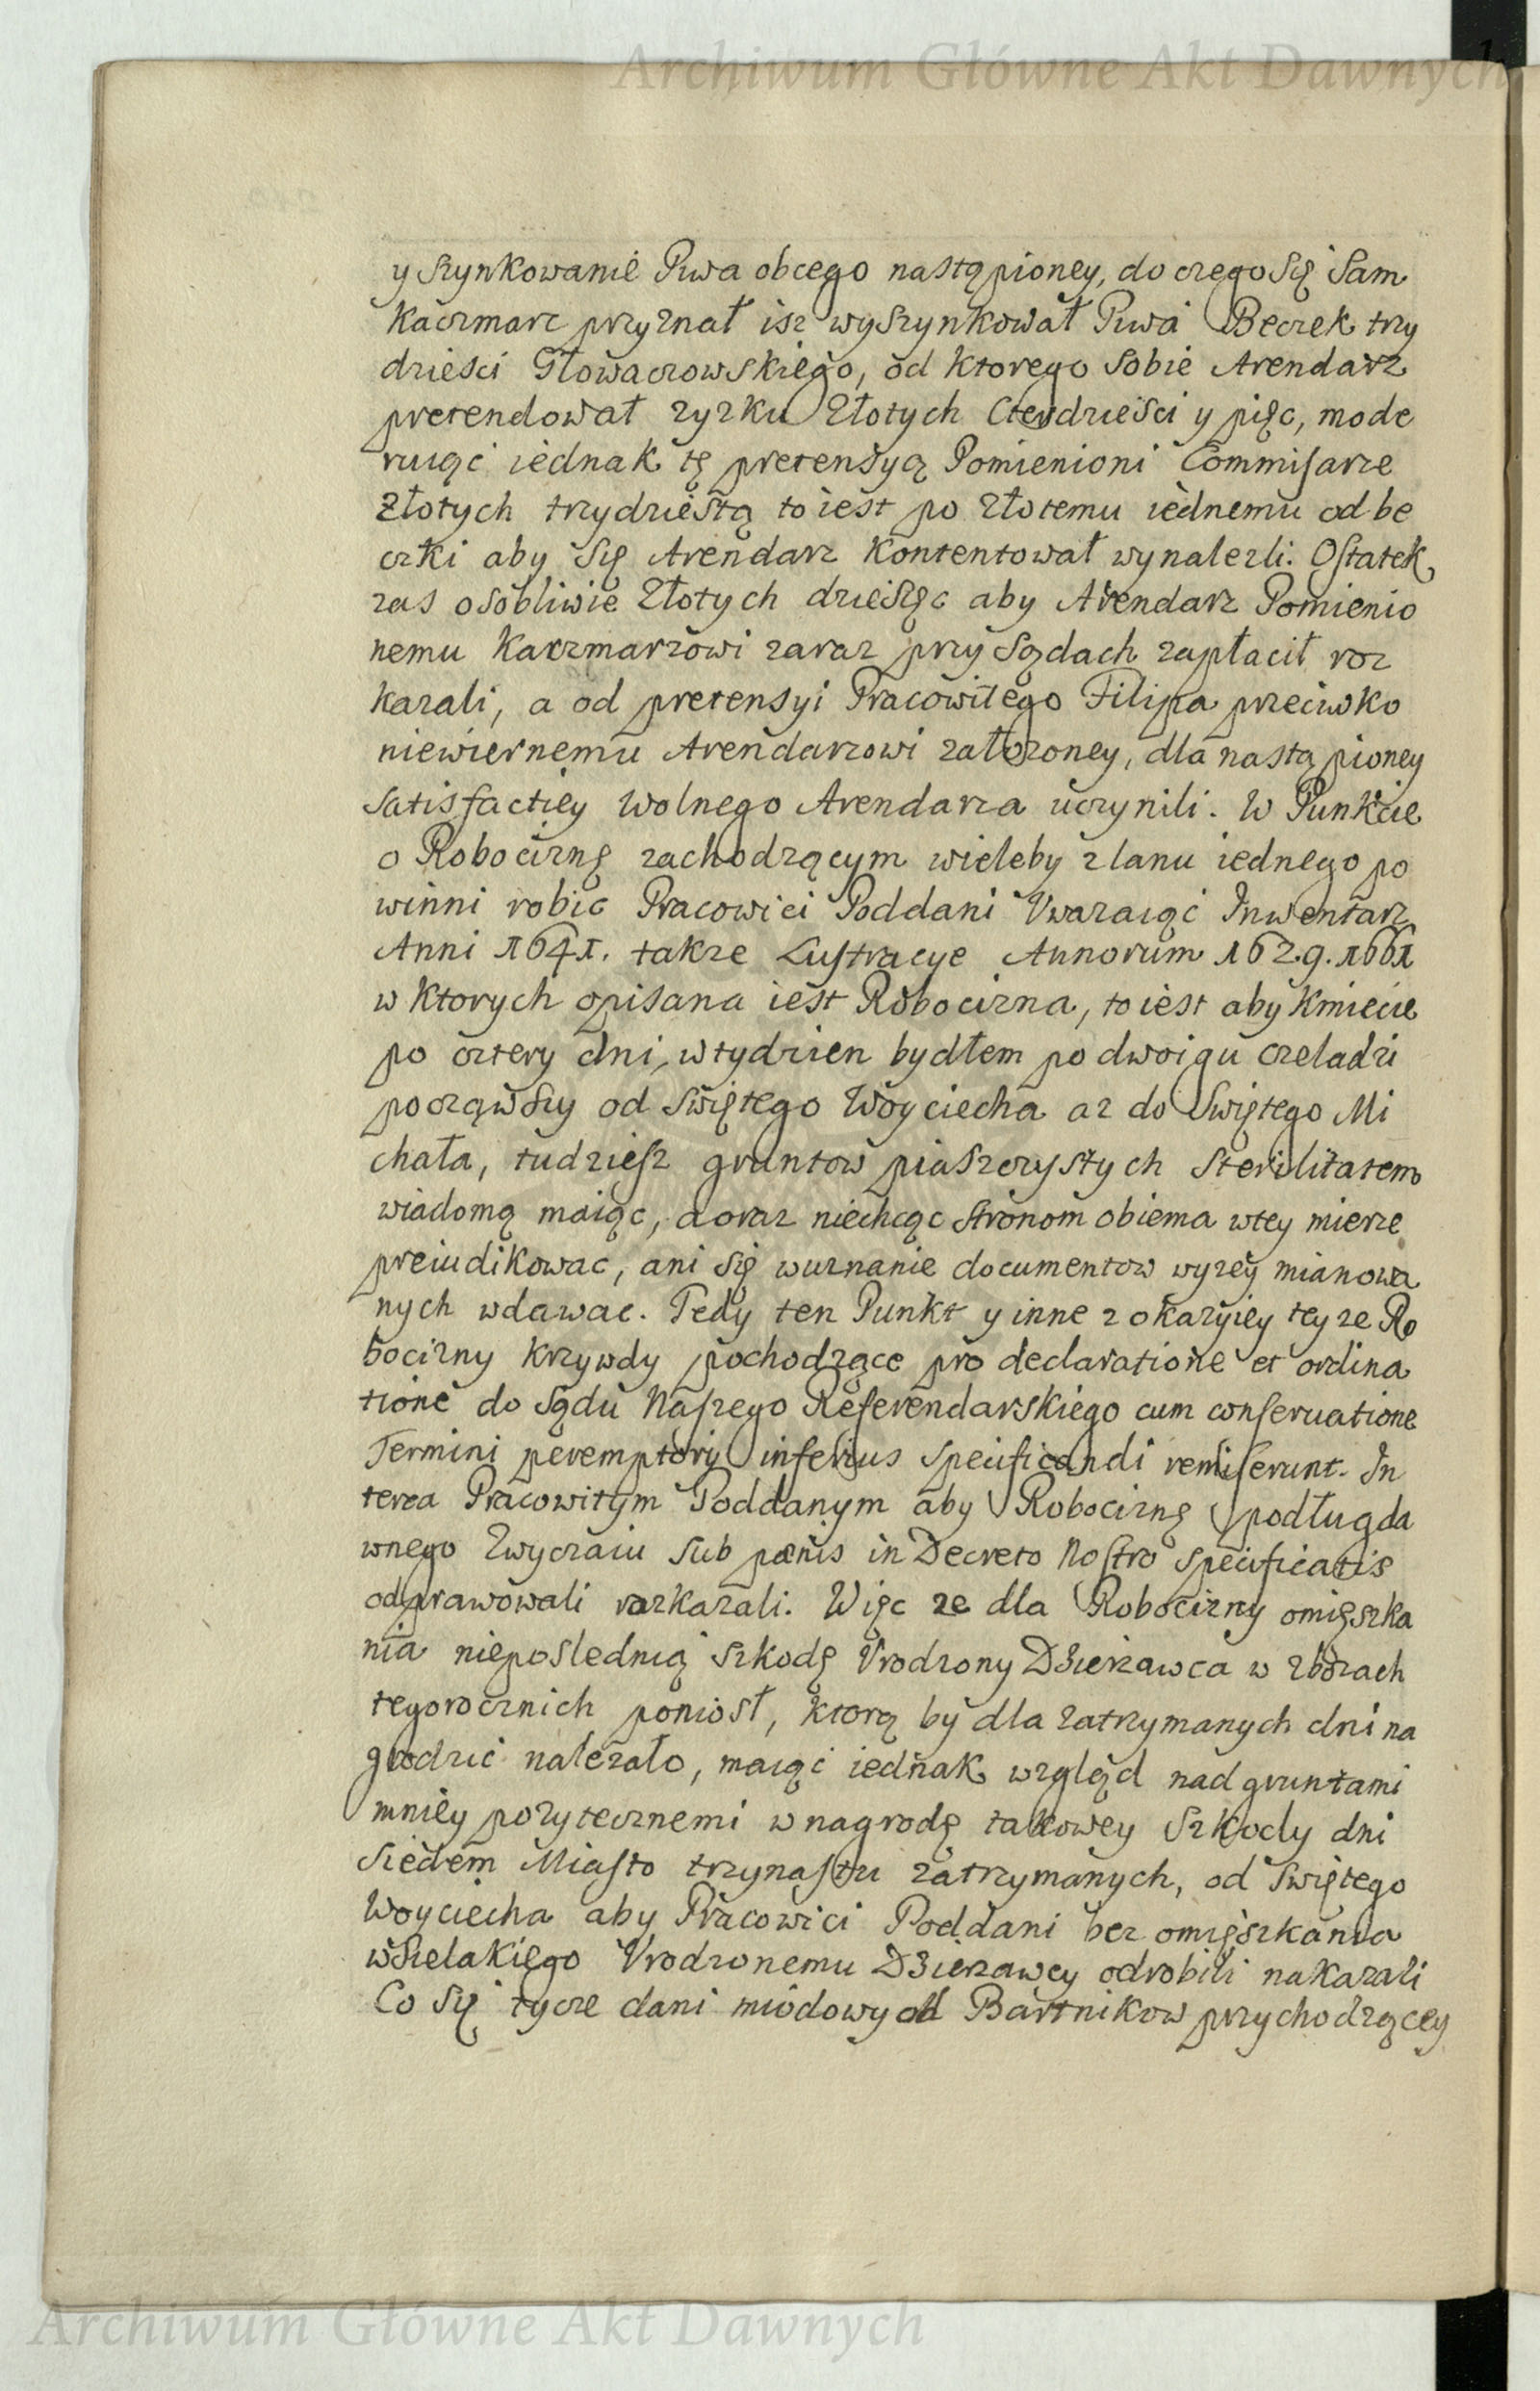 Archiwum Główne Akt Dawnych
y szynkowanie Piwa obcego nastąpioney, do czego się sam
Kaczmarz przyznał isz wyszynkował Piwa Beczek trzy
dziesci Głowaczowskiego, od ktorego sobie Arendarz
pretendował zyzku Złotych Cterdziesci y pięc, mode
ruiąc iednak tę pretensyą Pomienioni Commisarze
Złotych trzydziestą to iest po złotemu iednemu od be
czki aby się Arendarz kontentował wynalezli. Ostatek
zas osobliwie Złotych dziesięc aby Arendarz Pomienio
nemu Kaczmarzowi zaraz przy sądach zapłacił roz
kazali, a od pretensyi Pracowitego Filipa przeciwko
niewiernemu Arendarzowi założoney, dla nastąpioney
satisfactiey wolnego Arendarza uczynili. W Punkcie
o Robociznę zachodzącym wieleby z lanu iednego po
winni robic Pracowici Poddani Uwazaiąc Inwentarz
Anni 1641. takze Lustracye Annorum 1629. 1661
w ktorych opisana iest Robocizna, to iest aby Kmiecie
po cztery dni w tydzien bydłem po dwoigu czeladzi
począwszy od swiętego Woyciecha az do Swiętego Mi
chała, tudziesz gruntow piaszczystych sterilitatem
wiadomą maiąc, a oraz niechcąc stronom obiema w tey mierze
preiudikowac, ani się w uznanie documentow wyzey mianowa
nych wdawac. Tedy ten Punkt y inne z okazyiey teyze Ro
bocizny krzywdy pochodzące pro declaratione et ordina
tione do Sądu Naszego Referendarskiego cum conseruatione
Termini peremptorij inferius specificandi remiserunt. In
terea Pracowitym Poddanym aby Robociznę podług da
wnego Zwyczaiu sub pænis in Decreto Nostro specificatis
odprawowali rozkazali. Więc ze dla Robocizny omięszka
nia nieposlednią szkodę Urodzony Dzierzawca w zbozach
tegorocznich poniosł, ktorą by dla zatrzymanych dni na
grodzic nalezało, maiąc iednak wzgląd nad gruntami
mniey pozytecznemi w nagrodę takowey szkody dni
siedem Miasto trzynastu zatrzymanych, od Swiętego
Woyciecha aby Pracowici Poddani bez omięszkania
wszelakiego Urodzonemu Dzierzawcy odrobili nakazali
Co się tycze dani miodowy od Bartnikow przychodzącey
Archiwum Główne Akt Dawnych